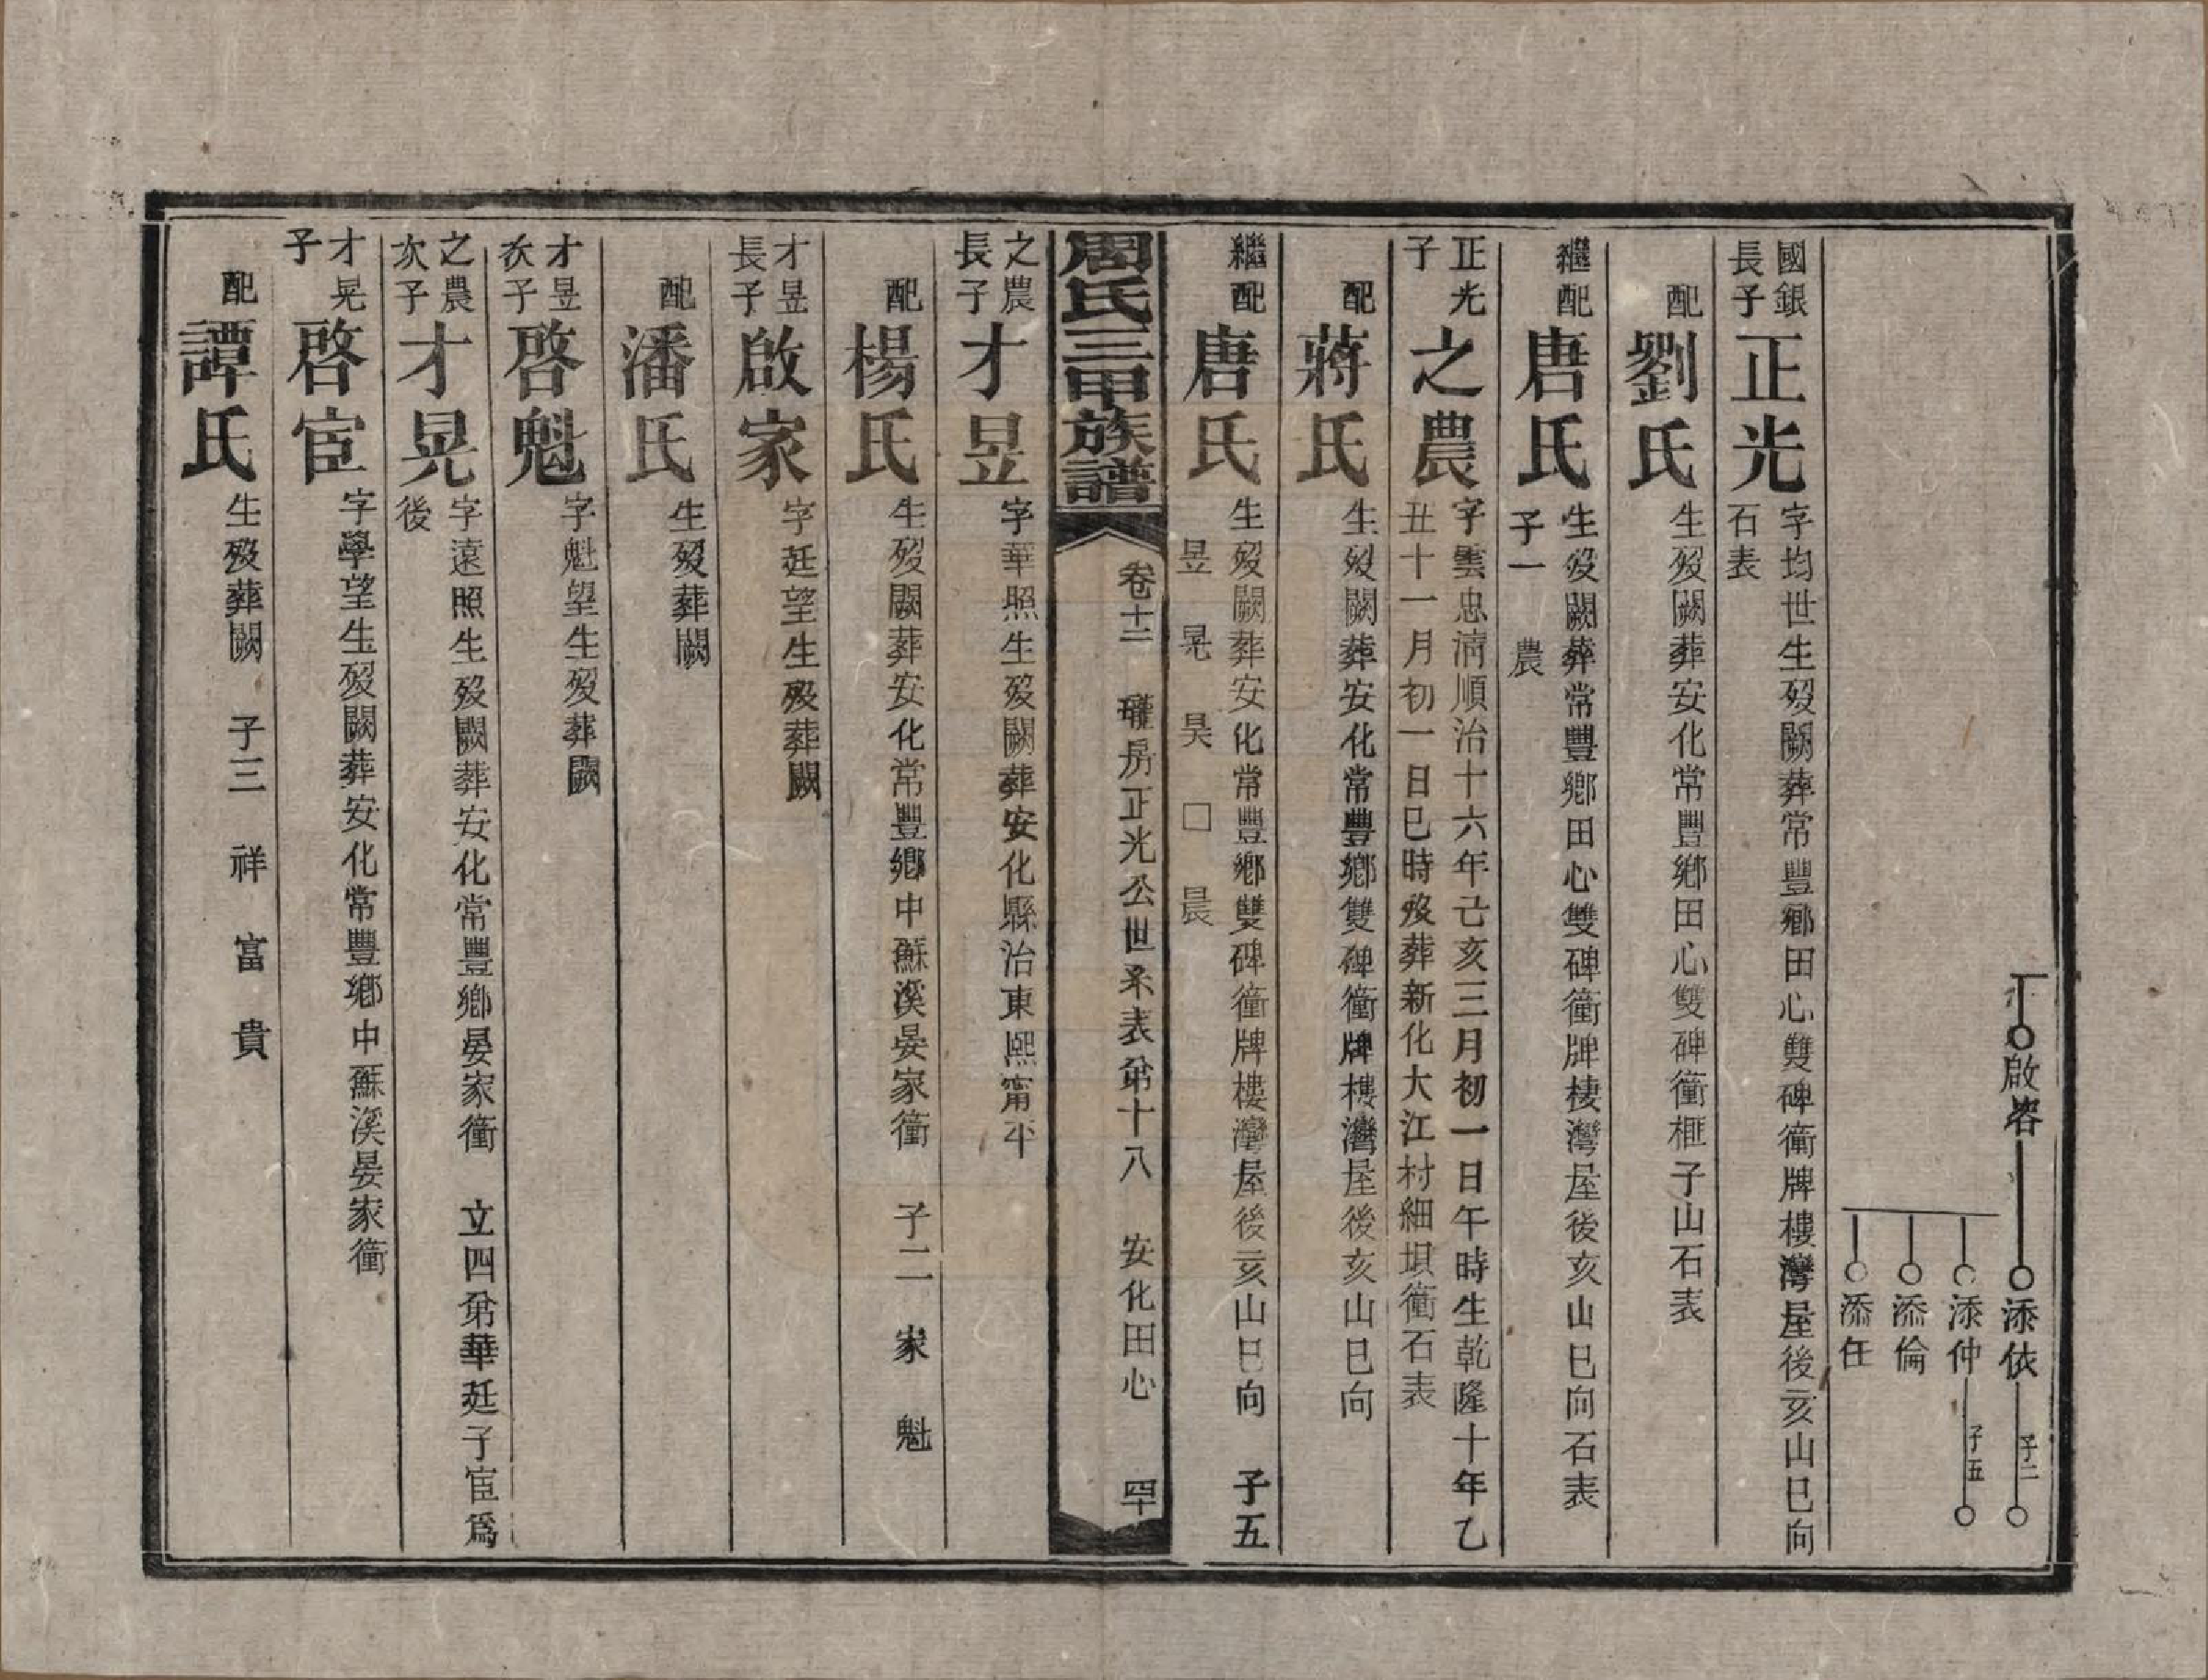 啟容
添依 子二
添仲 子五
添倫
添任
國銀長子 正光 字均世生歿闕葬常豐鄉田心雙碑衝牌樓灣屋後亥山巳向
石表
配 劉氏 生歿闕葬安化常豐鄉田心雙碑衝榧子山石表
繼配 唐氏 生歿闕葬常豐鄉田心雙碑衝牌樓灣屋後亥山巳向石表
子一 農
正光子 之農 字雲忠清順治十六年己亥三月初一日午時生乾隆十年乙
丑十一月初一日巳時歿葬新化大江村細垻衝石表
配 蔣氏 生歿闕葬安化常豐鄉雙碑衝牌樓灣屋後亥山巳向
繼配 唐氏 生歿闕葬安化常豐鄉雙碑衝牌樓灣屋後亥山巳向 子五
昱 晃 昊 □ 晨
周氏三甲族譜 卷十二 瓘房正光公世系表弟十八 安化田心 四十
之農長子 才昱 字華照生歿闕葬安化縣治東熙甯坪
配 楊氏 生歿闕葬安化常豐鄉中蘇溪晏家衝 子二 家 魁
才昱長子 啟家 字廷望生歿葬闕
配 潘氏 生歿葬闕
才昱次子 啓魁 字魁望生歿葬闕
之農次子 才晃 字遠照生歿闕葬安化常豐鄉晏家衝 立四弟華廷子宦爲
後
才晃子 啓宦 字學望生歿闕葬安化常豐鄉中蘇溪晏家衝
配 譚氏 生歿葬闕 子三 祥 富 貴